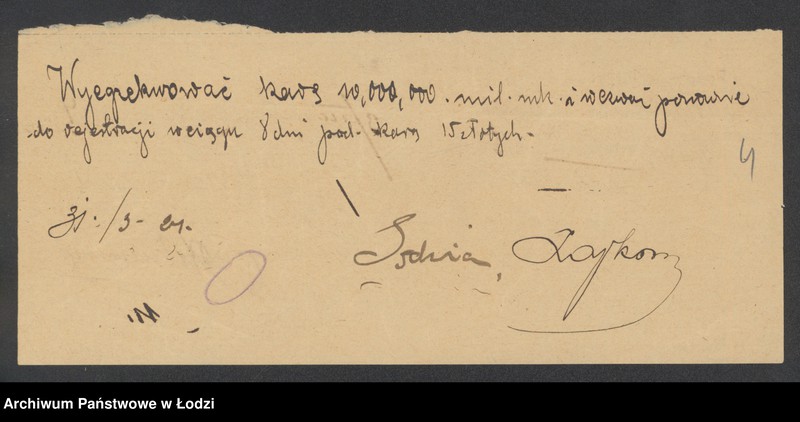 Wyegzekwować karę 10,000,000. mil. mk. i wezwać ponownie
do rejestracji w ciągu 8 dni pod karą 15 złotych.
4
31./3- 24.
Sędzia, Zajkow
Archiwum Państwowe w Łodzi